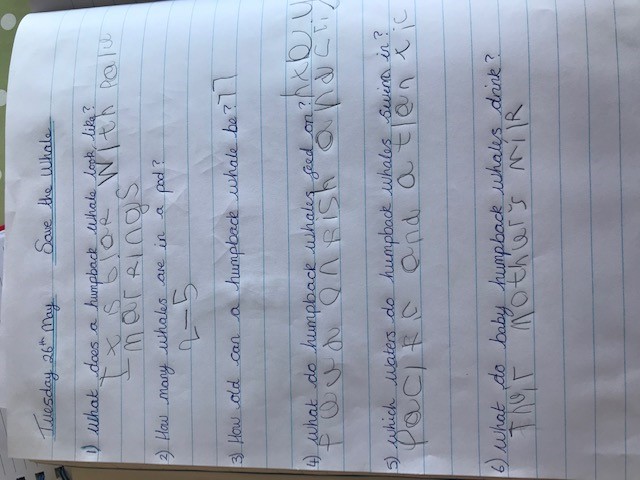 Tuesday 26th May Save the Whale
1) What does a humpback whale look like?
It's blak with palu
markings
2) How many whales are in a pod?
2-5
3) How old can a humpback whale be? 77
4) What do humpback whales feed on?
and
5) Which waters do humpback whales swim in?
Pacific and atlantic
6) What do baby humpback whales drink?
Their mother's milk